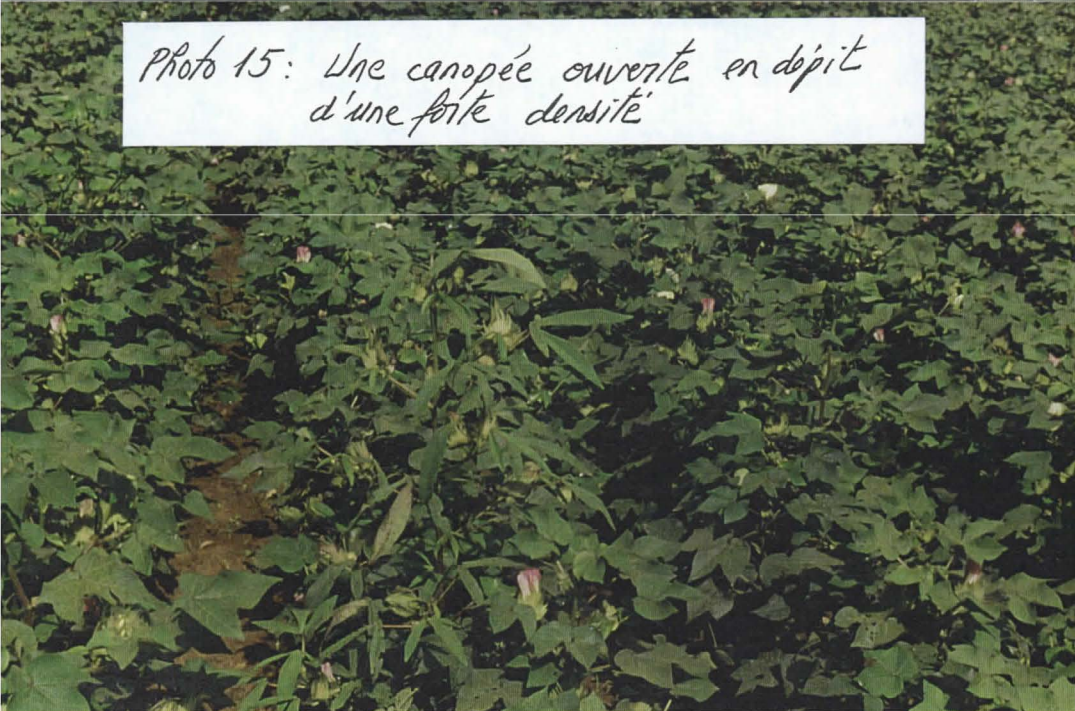 Photo 15: Une canopée ouverte en dépit
d'une forte densité